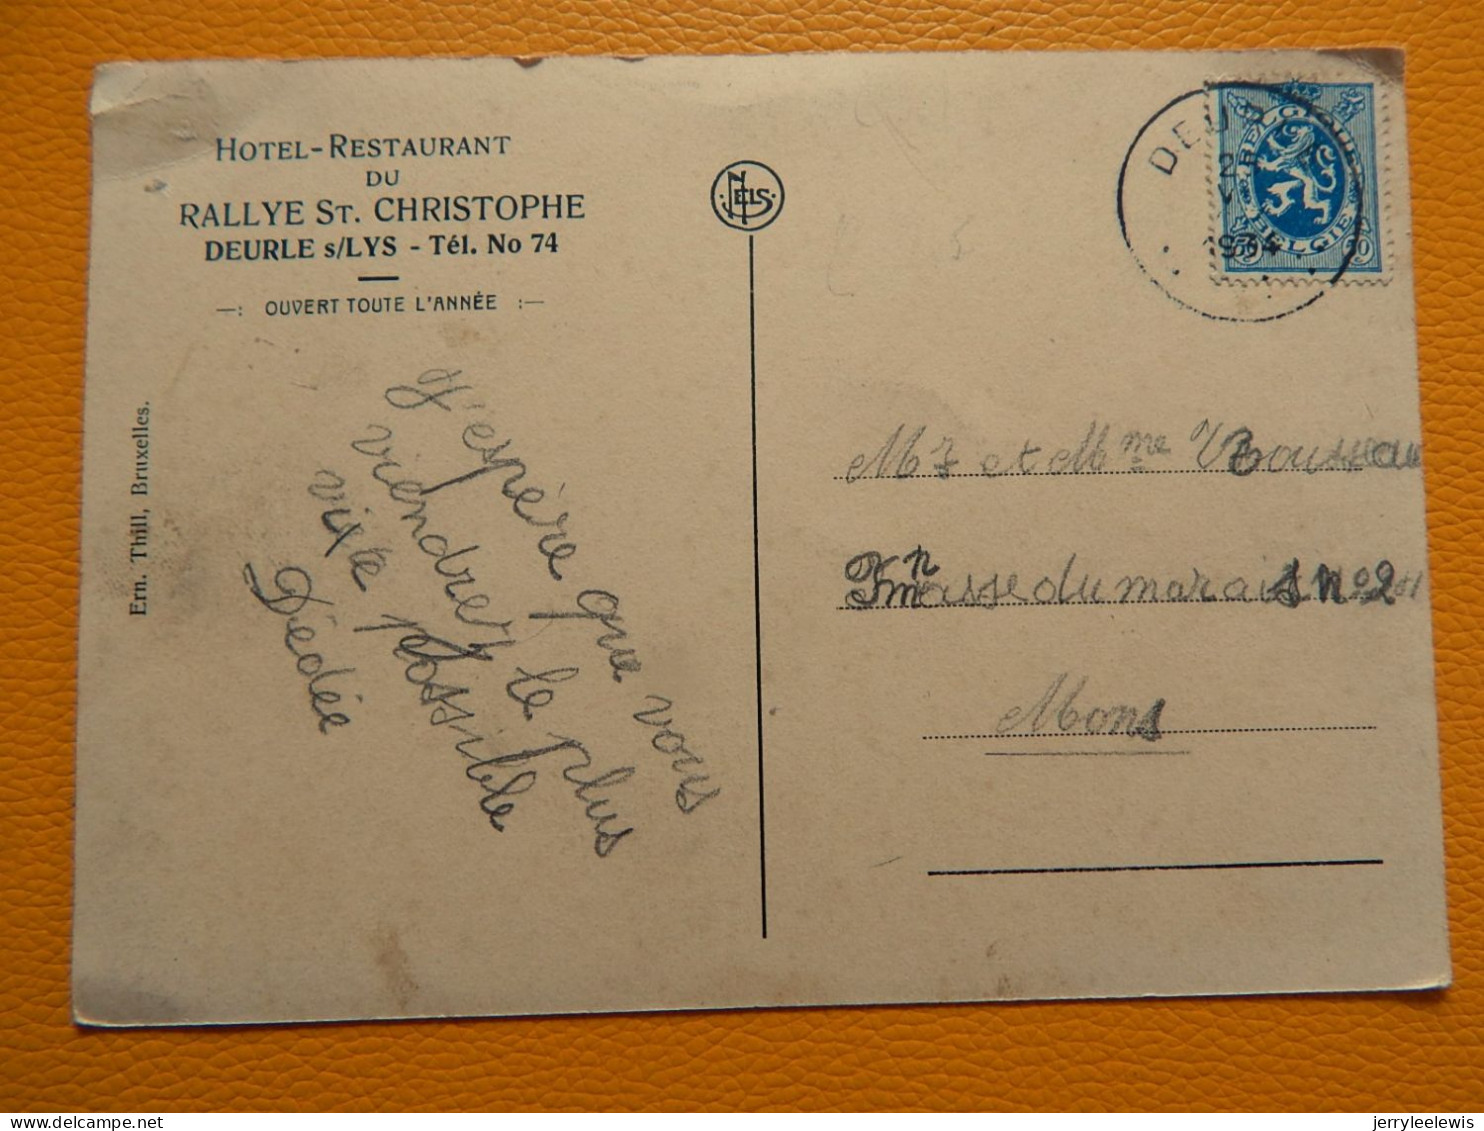 HOTEL-RESTAURANT
DU
RALLYE ST. CHRISTOPHE
DEURLE s/LYS - Tél. No 74
—: OUVERT TOUTE L'ANNÉE :—
Ern. Thill, Bruxelles.
J'espère que vous
viendrez le plus
vite possible
Dédée
NELS
DEUR
1934
BELGIQUE
BELGIE
50
Mr et Mme
du marais no 2
Mons
jerryleelewis